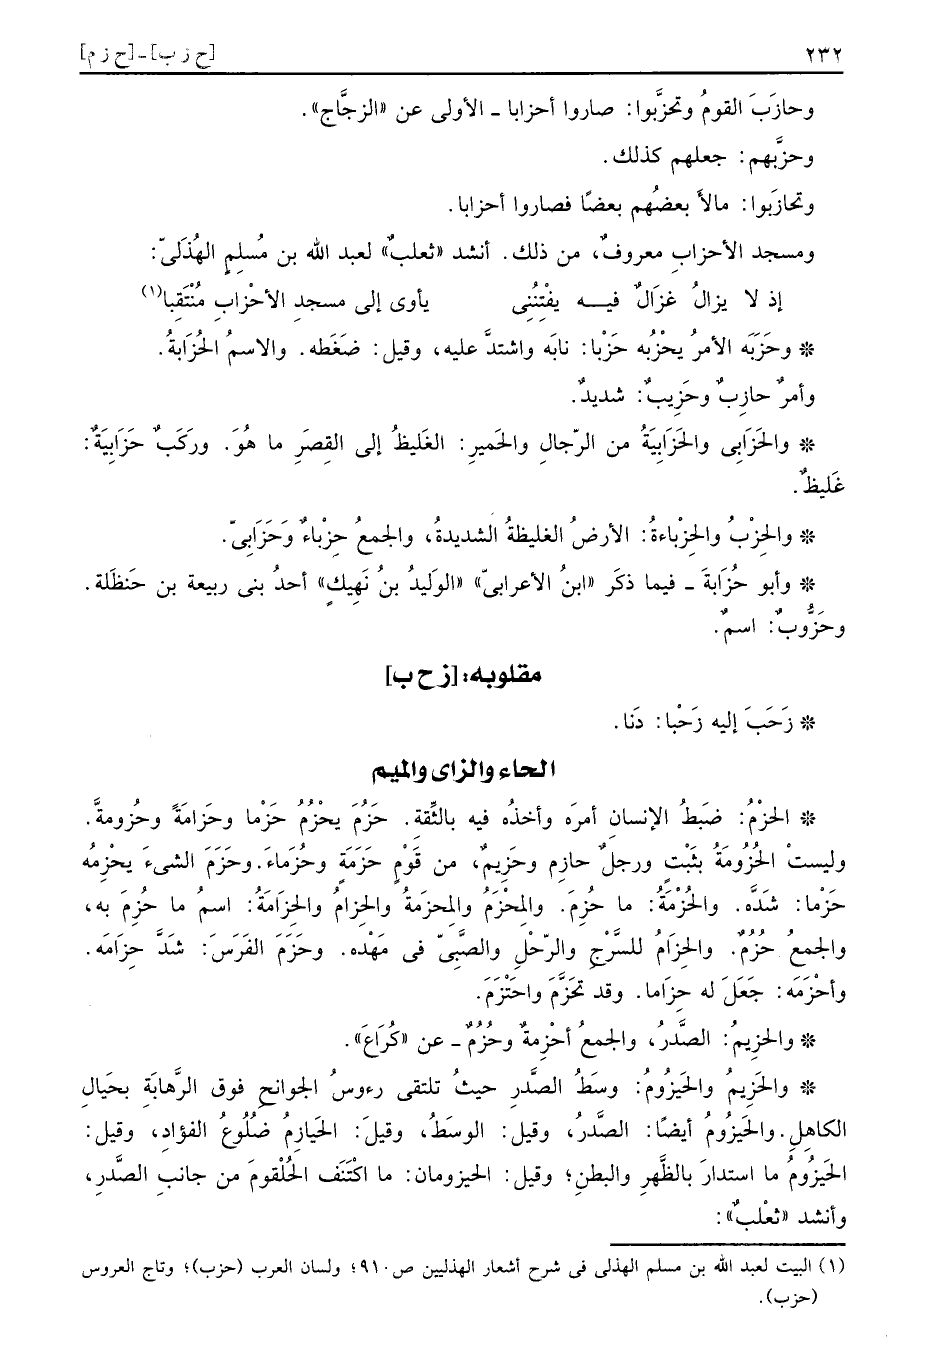 ٢٣٢
[ح ز ب] - [ح ز م]
وحازَبَ القومُ وتحزَّبوا: صاروا أحزابا ـ الأولى عن «الزجَّاج».
وحزَّبهم: جعلهم كذلك.
وتحازَبوا: مالأَ بعضُهم بعضًا فصاروا أحزابا.
ومسجد الأحزابِ معروفٌ، من ذلك. أنشد «ثعلبٌ» لعبد الله بن مُسلمٍ الهُذَلىّ:
إذ لا يزالُ غزَالٌ فيـــه يفْتِنُنِى يأوى إلى مسجدِ الأحْزابِ مُنْتَقبا(١)
* وحَزَبَه الأمرُ يحْزُبه حَزْبا: نابَه واشتدَّ عليه، وقيل: ضَغَطه. والاسمُ الحُزَابةُ.
وأمرٌ حازِبٌ وحَزِيبٌ: شديدٌ.
* والحَزَابى والحَزَابِيَةُ من الرّجالِ والحَميرِ: الغَليظُ إلى القِصَرِ ما هُوَ. ورَكَبٌ حَزَابِيَةٌ:
غَليظٌ.
* والحِزْبُ والحِزْباءةُ: الأرضُ الغليظةُ الشديدةُ، والجمعُ حِزْباءٌ وَحَزَابىّ.
* وأبو حُزَابةَ ـ فيما ذكَر «ابنُ الأعرابىّ» «الوَليدُ بنُ نَهِيكٍ» أحدُ بنى ربيعة بن حَنظَلة.
وحَزُّوبٌ: اسمٌ.
مقلوبه: [ز ح ب]
* زَحَبَ إليه زَحْبا: دَنا.
الحاء والزاى والميم
* الحَزْمُ: ضَبطُ الإنسانِ أمرَه وأخذُه فيه بالثِّقة. حَزُمَ يحْزُمُ حَزْما وحَزامَةً وحُزومةً.
وليستْ الحُزُومَةُ بثَبْتٍ ورجلٌ حازِم وحَزِيمٌ، من قَوْمٍ حَزَمَةٍ وحُزَماءَ. وحَزَمَ الشىءَ يحْزِمُه
حَزْما: شَدَّه. والحُزْمَةُ: ما حُزِمَ. والمِحْزَمُ والمِحزَمةُ والحِزامُ والحِزَامَةُ: اسمُ ما حُزِمَ به،
والجمعُ حُزُمٌ. والحِزَامُ للسَّرْجِ والرّحْلِ والصَّبىّ فى مَهْده. وحَزَمَ الفَرَسَ: شَدَّ حِزامَه.
وأحْزَمَه: جَعَلَ له حِزَاما. وقد تحَزَّمَ واحْتَزَمَ.
* والحزِيمُ: الصَّدرُ، والجمعُ أحْزِمةٌ وحُزُمٌ ـ عن «كُرَاعَ».
* والحَزِيمُ والحَيْزُومُ: وسَطُ الصَّدرِ حيثُ تلتقى رءوسُ الجوانحِ فوق الرَّهابَةِ بحَيالِ
الكاهِلِ. والحَيزُومُ أيضًا: الصَّدرُ، وقيل: الوسَطُ، وقيلَ: الحَيازمُ ضُلُوعُ الفؤادِ، وقيل:
الحَيزُومُ ما استدارَ بالظَّهرِ والبطنِ؛ وقيل: الحيزومان: ما اكْتَنَف الحُلْقومَ من جانبِ الصَّدرِ،
وأنشد «ثعْلبٌ»:
(١) البيت لعبد الله بن مسلم الهذلى فى شرح أشعار الهذليين ص٩١٠؛ ولسان العرب (حزب)؛ وتاج العروس
(حزب).